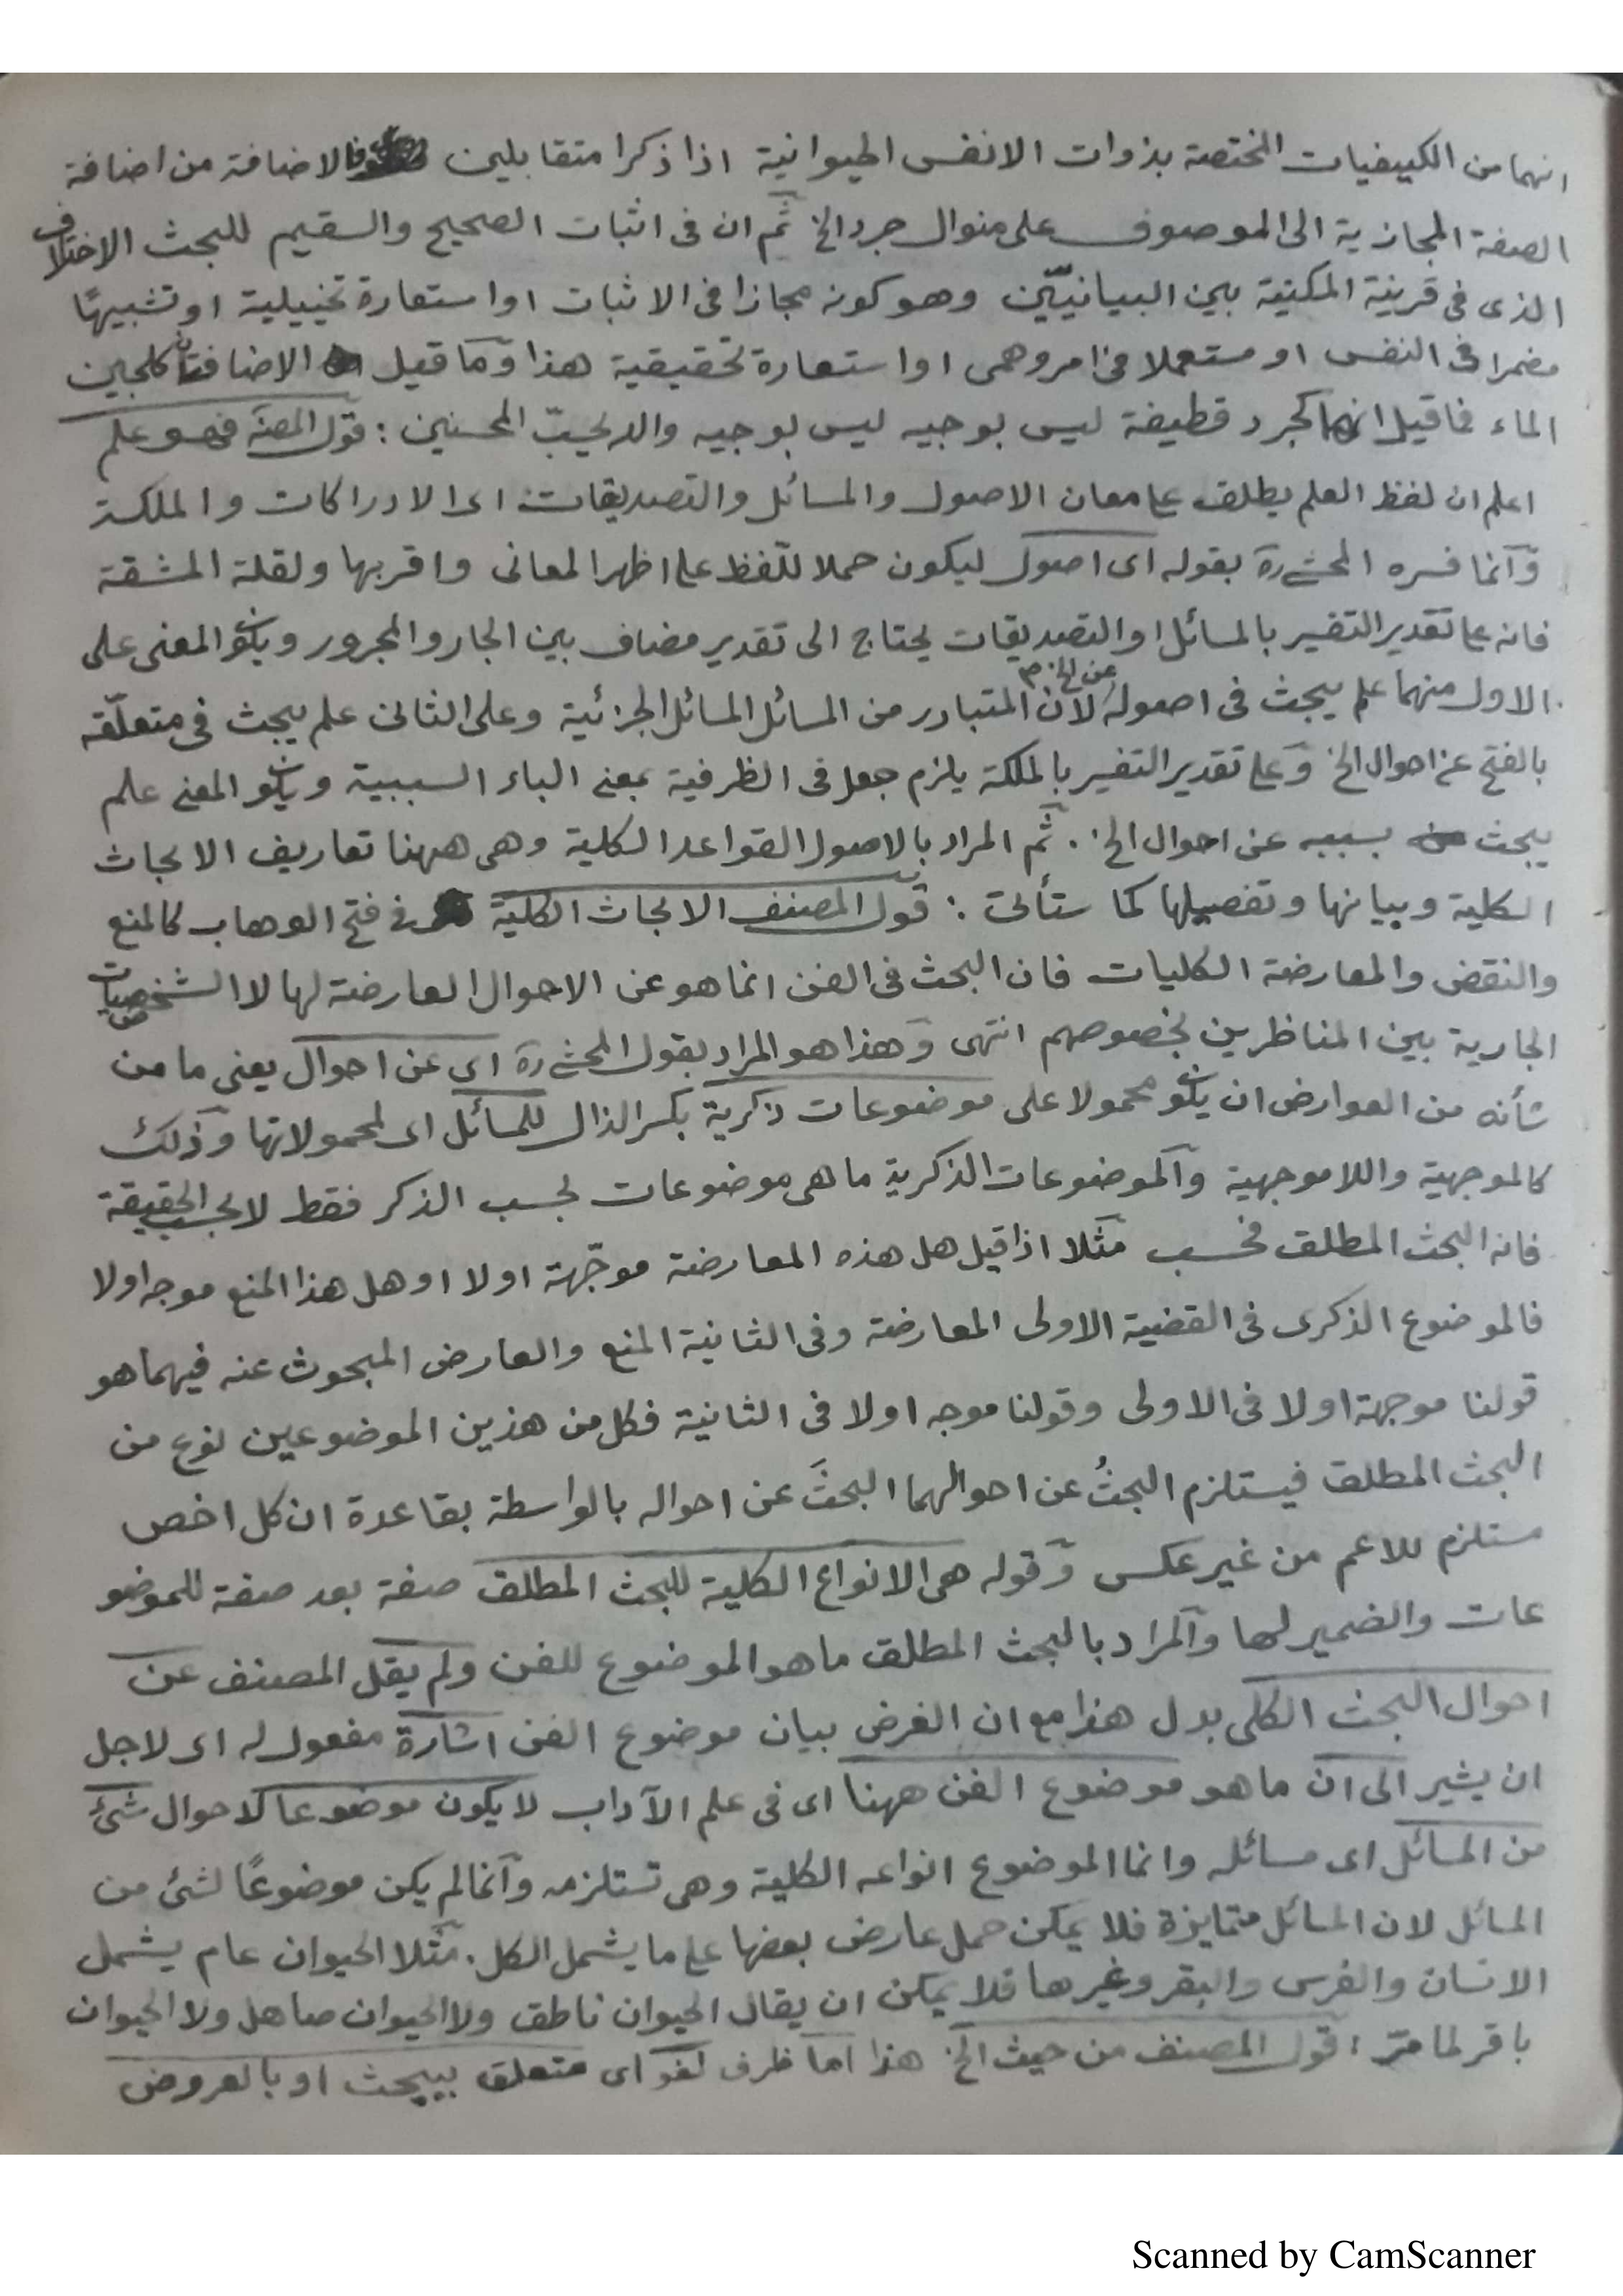 انهما من الكيفيات المختصة بذوات الانفس الحيوانية اذا ذكرا متقابلين فالاضافة من اضافة
الصفة المجازية الى الموصوف على منوال جرد الخ ثم ان فى اثبات الصحيح والسقيم للبحث الاختلاف
الذى فى قرينة المكنية بين البيانيّين وهو كونه مجازا فى الاثبات او استعارة تخييلية او تشبيهًا
مضمرا فى النفس او مستعملا فى امر وهمى او استعارة تحقيقية هذا وما قيل الاضافتان كلجين
الماء فما قيل انهما كجرد قطيفة ليس بوجيه ليس بوجيه والله يحبّ المحسنين : قول المصنه فهو علم
اعلم ان لفظ العلم يطلق على معان الاصول والمسائل والتصديقات اى الادراكات والملكة
وانما فسره المحشى ره بقوله اى اصول ليكون حملا للّفظ على اظهر المعانى واقربها ولقلة المشقة
فانه على تقدير التفسير بالمسائل او التصديقات يحتاج الى تقدير مضاف بين الجار والمجرور ويكون المعنى على
الاول منهما علم يبحث فى اصوله عن الخ م لان المتبادر من المسائل المسائل الجزئية وعلى الثانى علم يبحث فى متعلّقه
بالفتح عن احوال الخ وعلى تقدير التفسير بالملكة يلزم جعل فى الظرفية بمعنى الباء السببية ويكون المعنى علم
يبحث بسببه عن احوال الخ . ثم المراد بالاصول القواعد الكلية وهى ههنا تعاريف الابحاث
الكلية وبيانها وتفصيلها كما ستأتى : قول المصنف الابحاث الكلية فى فتح الوهاب كالمنع
والنقض والمعارضة الكليات فان البحث فى الفن انما هو عن الاحوال العارضة لها لا الشخصيات
الجارية بين المناظرين بخصوصهم انتهى وهذا هو المراد بقول المحشى ره اى عن احوال يعنى ما من
شأنه من العوارض ان يكون محمولا على موضوعات ذكرية بكسر الذال للمسائل اى لمحمولاتها وذلك
كالموجهية واللاموجهية والموضوعات الذكرية ما هى موضوعات بحسب الذكر فقط لا بحسب الحقيقة
فانه البحث المطلق فحسب مثلا اذا قيل هل هذه المعارضة موجّهة اولا او هل هذا المنع موجه اولا
فالموضوع الذكرى فى القضية الاولى المعارضة وفى الثانية المنع والعارض المبحوث عنه فيهما هو
قولنا موجهة اولا فى الاولى وقولنا موجه اولا فى الثانية فكل من هذين الموضوعين نوع من
البحث المطلق فيستلزم البحثُ عن احوالهما البحثَ عن احواله بالواسطة بقاعدة ان كل اخص
مستلزم للاعم من غير عكس وقوله هى الانواع الكلية للبحث المطلق صفة بعد صفة للموضو
عات والضمير لها والمراد بالبحث المطلق ما هو الموضوع للفن ولم يقل المصنف عن
احوال البحث الكلى بدل هذا مع ان الغرض بيان موضوع الفن اشارة مفعول له اى لاجل
ان يشير الى ان ما هو موضوع الفن ههنا اى فى علم الآداب لا يكون موضوعا لاحوال شئ
من المسائل اى مسائله وانما الموضوع انواعه الكلية وهى تستلزمه وانما لم يكن موضوعًا لشئ من
المسائل لان المسائل متمايزة فلا يمكن حمل عارض بعضها على ما يشمل الكل . مثلا الحيوان عام يشمل
الانسان والفرس والبقر وغيرها فلا يمكن ان يقال الحيوان ناطق ولا الحيوان صاهل ولا الحيوان
باقر لما مرّ : قول المصنف من حيث الخ هذا اما ظرف لغو اى متعلق بيبحث او بالعروض
Scanned by CamScanner